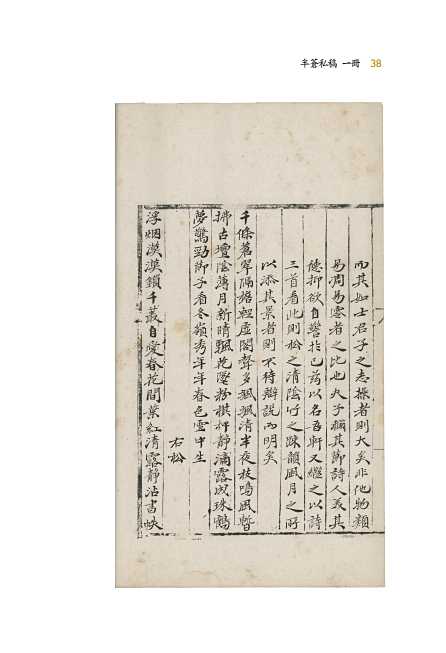 半蒼私稿 一冊 38
而其如士君子之志操者則大矣非他物類
易凋易瘁者之比也夫子稱其節詩人美其
德抑欲自警於己玆以名吾軒又繼之以詩
三首看此則松之清陰竹之踈韻風月之所
以添其景者則不待辯說而明矣
千條蒼翠隔輕虛閣聲多颯颯清半夜枝鳴風暫
拂古壇陰薄月新晴飄花墜粉棋枰靜滴露成珠鶴
夢驚勁節子看冬嶺秀年年春色雪中生
右松
浮烟漠漠鎖千叢自愛春花間葉紅清露靜沾書帙